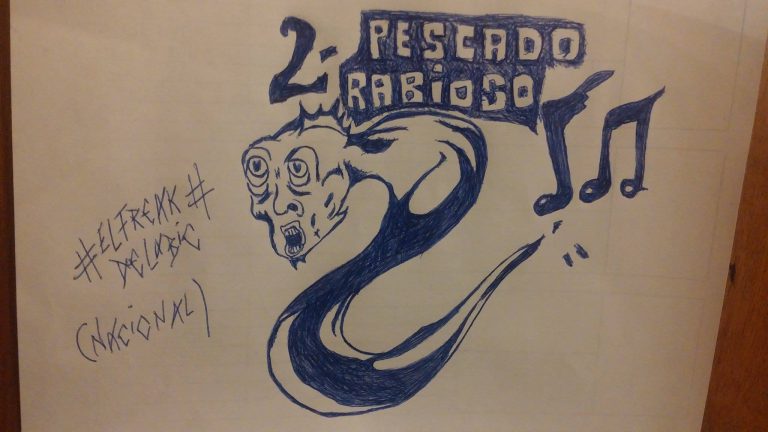 2.- PESCADO
RABIOSO
#ELFREAK#
DELABIC
(NACIONAL)